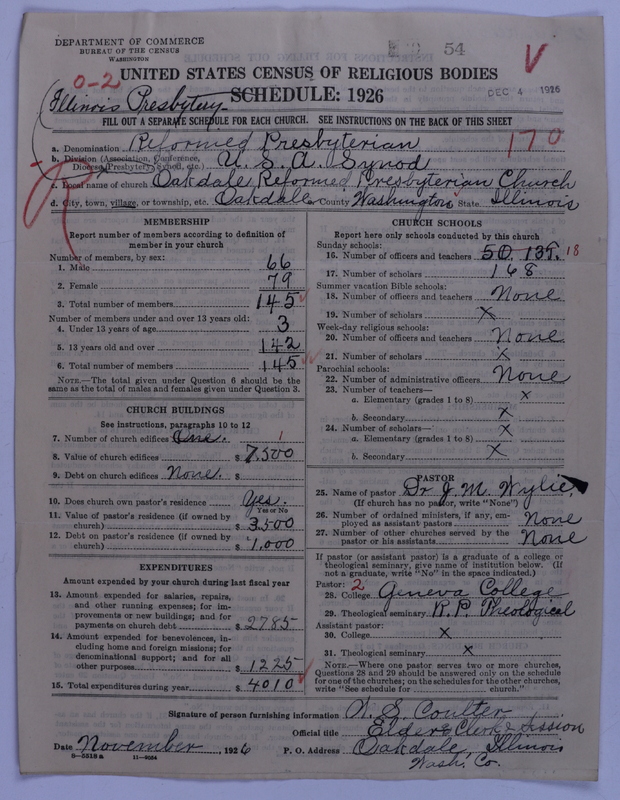 DEPARTMENT OF COMMERCE
BUREAU OF THE CENSUS
WASHINGTON
54
V
UNITED STATES CENSUS OF RELIGIOUS BODIES
0-2
SCHEDULE: 1926
DEC 4 1926
Illinois Presbytery
FILL OUT A SEPARATE SCHEDULE FOR EACH CHURCH. SEE INSTRUCTIONS ON THE BACK OF THIS SHEET
a. Denomination Reformed Presbyterian 170
b. Division (Association, Conference, Diocese, Presbytery, Synod, etc.) U. S. A. Synod
c. Local name of church Oakdale Reformed Presbyterian Church
d. City, town, village, or township, etc. Oakdale County Washington State Illinois
MEMBERSHIP
Report number of members according to definition of member in your church
Number of members, by sex:
1. Male 66
2. Female 79
3. Total number of members 145
Number of members under and over 13 years old:
4. Under 13 years of age 3
5. 13 years old and over 142
6. Total number of members 145
NOTE.—The total given under Question 6 should be the same as the total of males and females given under Question 3.
CHURCH BUILDINGS
See instructions, paragraphs 10 to 12
7. Number of church edifices One. 1
8. Value of church edifices $ 7,500
9. Debt on church edifices None. $
10. Does church own pastor's residence Yes.
Yes or No
11. Value of pastor's residence (if owned by church) $ 3,500
12. Debt on pastor's residence (if owned by church) $ 1,000
EXPENDITURES
Amount expended by your church during last fiscal year
13. Amount expended for salaries, repairs, and other running expenses; for improvements or new buildings; and for payments on church debt $ 2785
14. Amount expended for benevolences, including home and foreign missions; for denominational support; and for all other purposes $ 1225
15. Total expenditures during year $ 4010
CHURCH SCHOOLS
Report here only schools conducted by this church
Sunday schools:
16. Number of officers and teachers 18
17. Number of scholars 168
Summer vacation Bible schools:
18. Number of officers and teachers None
19. Number of scholars X
Week-day religious schools:
20. Number of officers and teachers None
21. Number of scholars X
Parochial schools:
22. Number of administrative officers None
23. Number of teachers—
a. Elementary (grades 1 to 8) X
b. Secondary X
24. Number of scholars—
a. Elementary (grades 1 to 8) X
b. Secondary X
PASTOR
25. Name of pastor Dr J. M. Wylie,
(If church has no pastor, write "None")
26. Number of ordained ministers, if any, employed as assistant pastors None
27. Number of other churches served by the pastor or his assistants None
If pastor (or assistant pastor) is a graduate of a college or theological seminary, give name of institution below. (If not a graduate, write "No" in the space indicated.)
Pastor: 2
28. College Geneva College
29. Theological seminary R. P. Theological
Assistant pastor:
30. College X
31. Theological seminary X
NOTE.—Where one pastor serves two or more churches, Questions 28 and 29 should be answered only on the schedule for one of the churches; on the schedules for the other churches, write "See schedule for church."
Signature of person furnishing information W. S. Coulter
Official title Elder & Clerk of Session
Date November, 1926 P. O. Address Oakdale, Illinois
Wash. Co.
8-5518a 11-9034